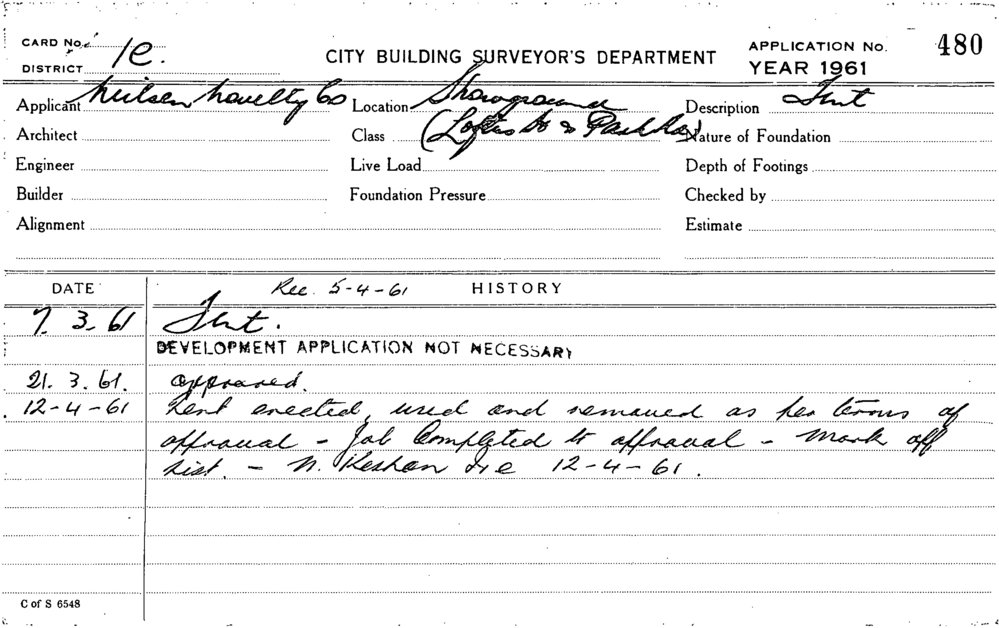 CARD No.
DISTRICT 1e.
CITY BUILDING SURVEYOR'S DEPARTMENT
APPLICATION No. 480
YEAR 1961
Applicant Neilsen Novelty Co Location Showground Description Tent
Architect Class (Loftus St & Park Rd) Nature of Foundation
Engineer Live Load Depth of Footings
Builder Foundation Pressure Checked by
Alignment Estimate
DATE Rec. 5-4-61 HISTORY
7. 3. 61 Tent.
DEVELOPMENT APPLICATION NOT NECESSARY
21. 3. 61. approved.
12-4-61 Tent erected, used and removed as per terms of
approval - Job Completed to approval - Mark off
List. - N. 12-4-61.
C of S 6548